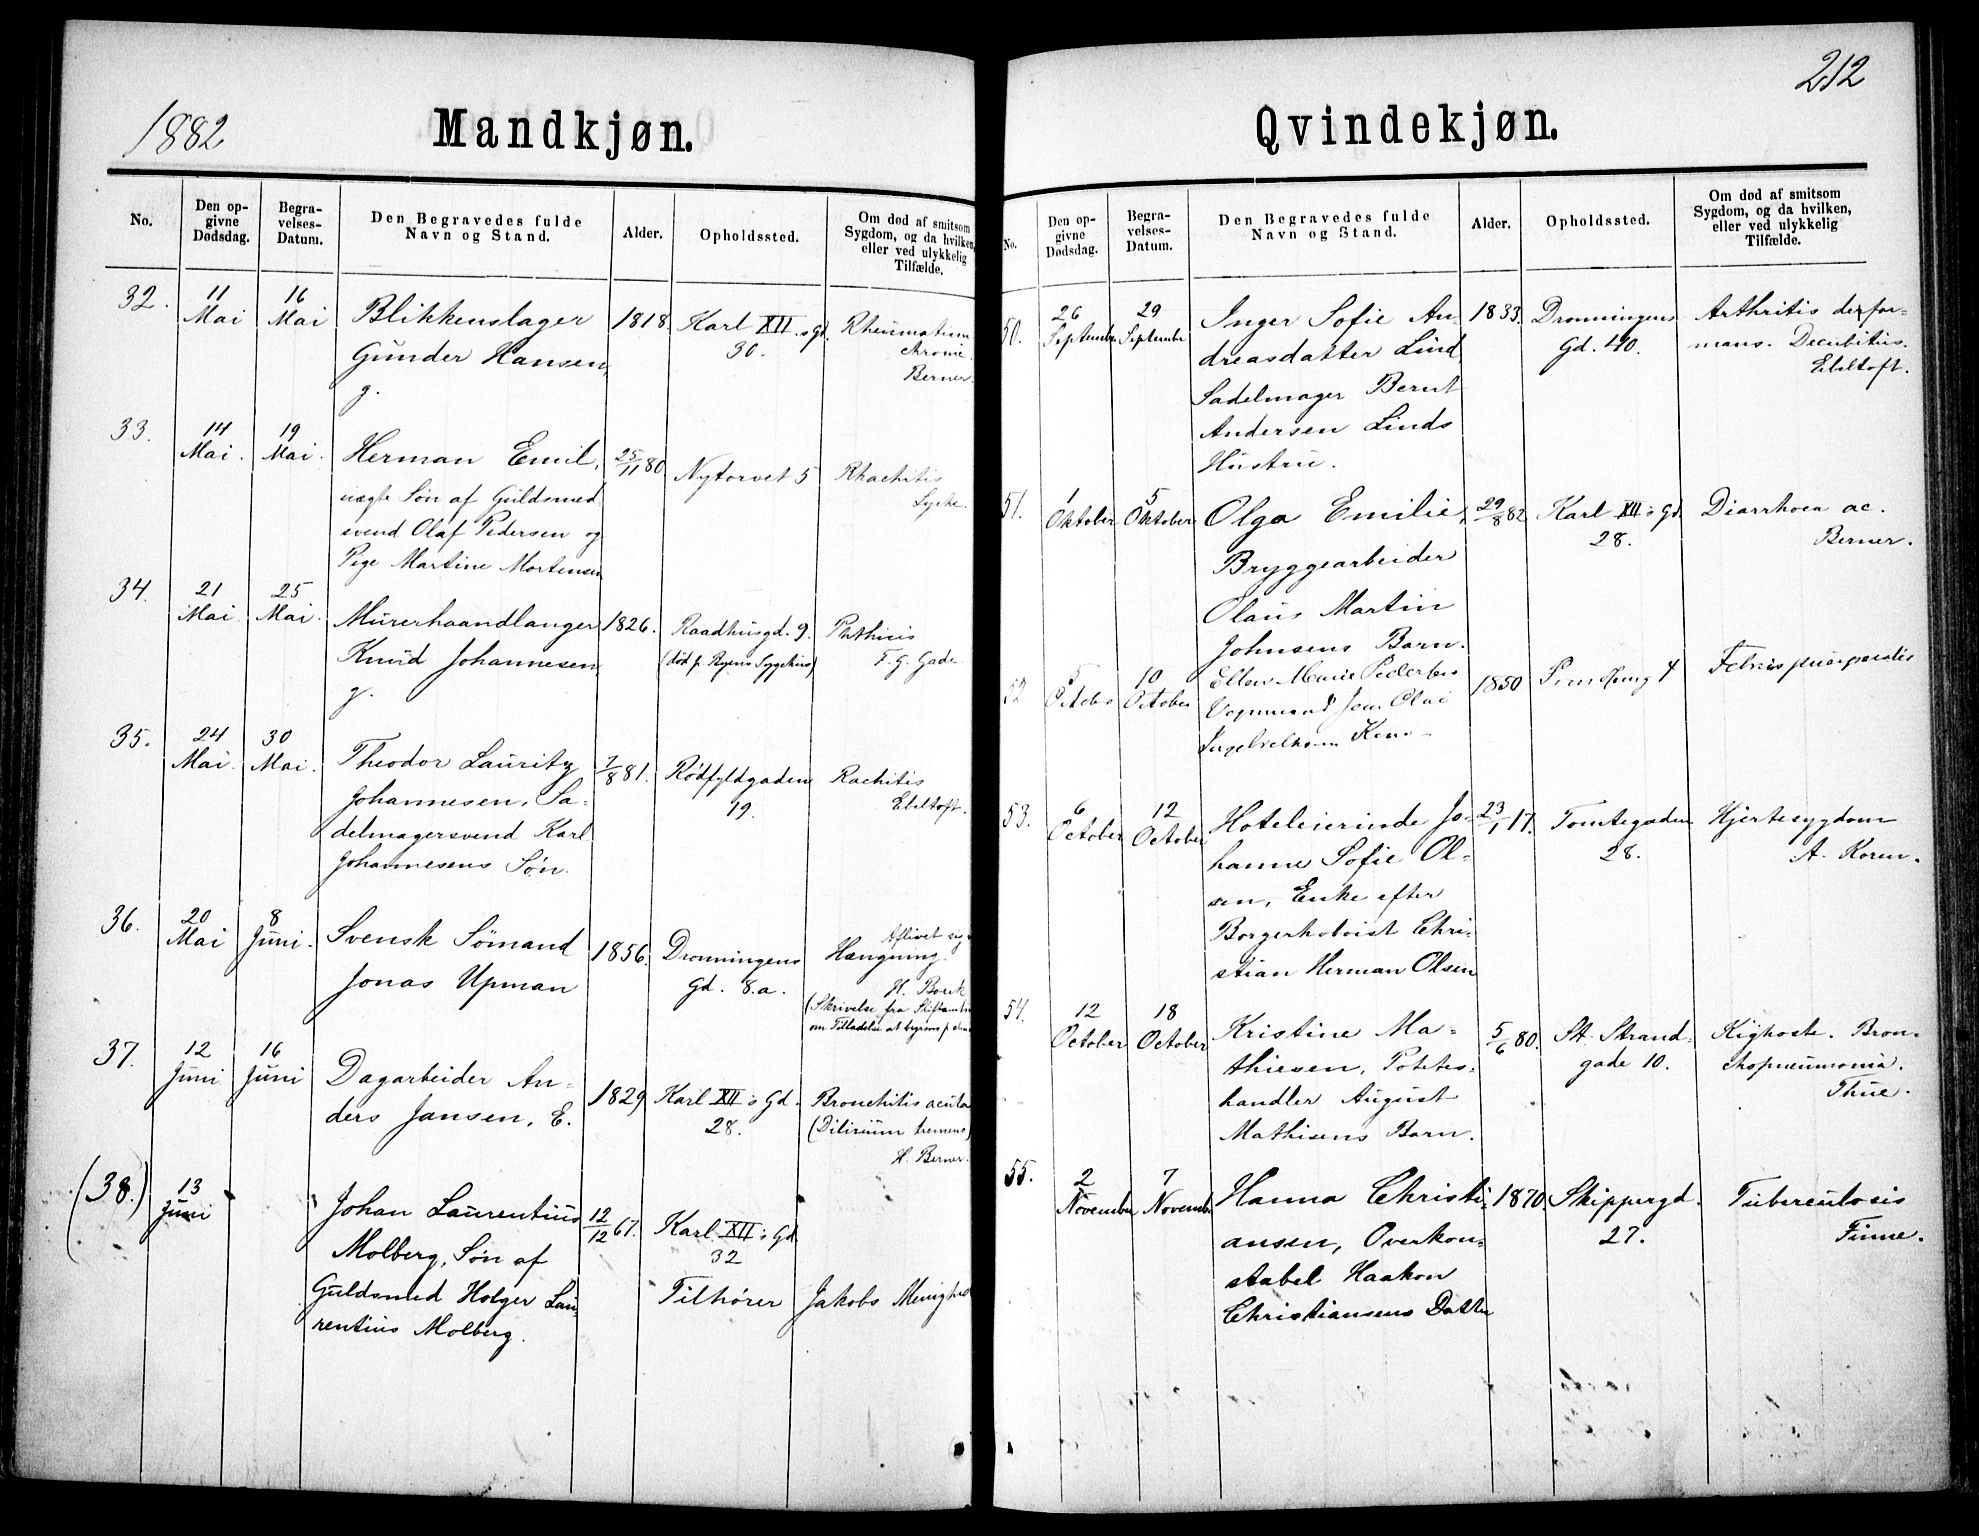 1882
Mandkjøn.
No.
Den op-
givne
Dødsdag.
Begra-
velses-
Datum.
Den Begravedes fulde
Navn og Stand.
Alder.
Opholdssted.
Om død af smitsom
Sygdom, og da hvilken,
eller ved ulykkelig
Tilfælde.
32.
11
Mai
16
Mai
Blikkenslager
Gunder Hansen,
g.
1818.
Karl XII.s Gd.
30.
Rheumatism
chronic.
Berner.
33.
14
Mai.
19
Mai.
Herman Emil,
uægte Søn af Guldsmed
svend Olaf Pedersen og
Pige Martine Mortensen
25/11 80
Nytorvet 5
Rhachitis
Lyche.
34.
21
Mai.
25
Mai.
Murerhaandlanger
Knud Johannesen,
g.
1826.
Raadhusgd. 9.
(død p. Byens Sygehus)
Phthisis
F. G. Gade
35.
24
Mai.
30
Mai.
Theodor Lauritz
Johannesen, Sa-
delmagersvend Karl
Johannesens Søn.
7/8 81.
Rødfyldgaden
19.
Rachitis
Edeltoft.
36.
20
Mai
8
Juni.
Svensk Sömand
Jonas Upman
1856.
Dronningens
Gd. 8.a.
Aflivet sig v
Hængning.
H. Boeck
(Skrivelse fra Stiftamtm
om Tilladelse at
37.
12
Juni
16
Juni
Dagarbeider An-
ders Jansen, E.
1829
Karl XII's Gd.
28.
Bronchitis acuta
(Dilirium tremens)
H. Berner.
(38.)
13
Juni
Johan Laurentius
Molberg, Søn af
Guldsmed Holger Lau-
rentius Molberg.
12/12 67.
Karl XII's Gd
32
Tilhører Jakobs Menighed
212
Qvindekjøn.
No.
Den op-
givne
Dødsdag.
Begra-
velses-
Datum.
Den Begravedes fulde
Navn og Stand.
Alder.
Opholdssted.
Om død af smitsom
Sygdom, og da hvilken,
eller ved ulykkelig
Tilfælde.
50.
26
September
29
September
Inger Sofie An-
dreasdatter Lind
Sadelmager Bernt
Andersen Linds
Hustru.
1833.
Dronningens
Gd. 40.
Arthritis defor-
mans. Decubitus.
Edeltoft.
51.
1
Oktober
5
Oktober
Olga Emilie,
Bryggearbeider
Olaus Martin
Johnsens Barn.
29/8 82
Karl XII's Gd.
28.
Diarrhoea ac.
Berner.
52
5
October
10
October
Ellen Marie Pedersen
Vognmand Jens Olai
Kone
1850
4
Febris puerperalis
53.
6
October
12
October
Hoteleierinde Jo-
hanne Sofie Ol-
sen, Enke efter
Borgerhoboist Chri-
stian Herman Olsen
23/1 17.
Tomtegaden
28.
Hjertesygdom
A. Koren.
54.
12
October
18
October
Kristine Ma-
thiesen, Potetes-
handler August
Mathisens Barn.
5/6 80.
St. Strand-
gade 10.
Kighoste. Bron-
chopneumonia.
Thue.
55.
2
November
7
November
Hanna Christi-
ansen, Overkon-
stabel Haakon
Christiansens Datter
1870.
Skippergd.
27.
Tuberculosis
Finne.